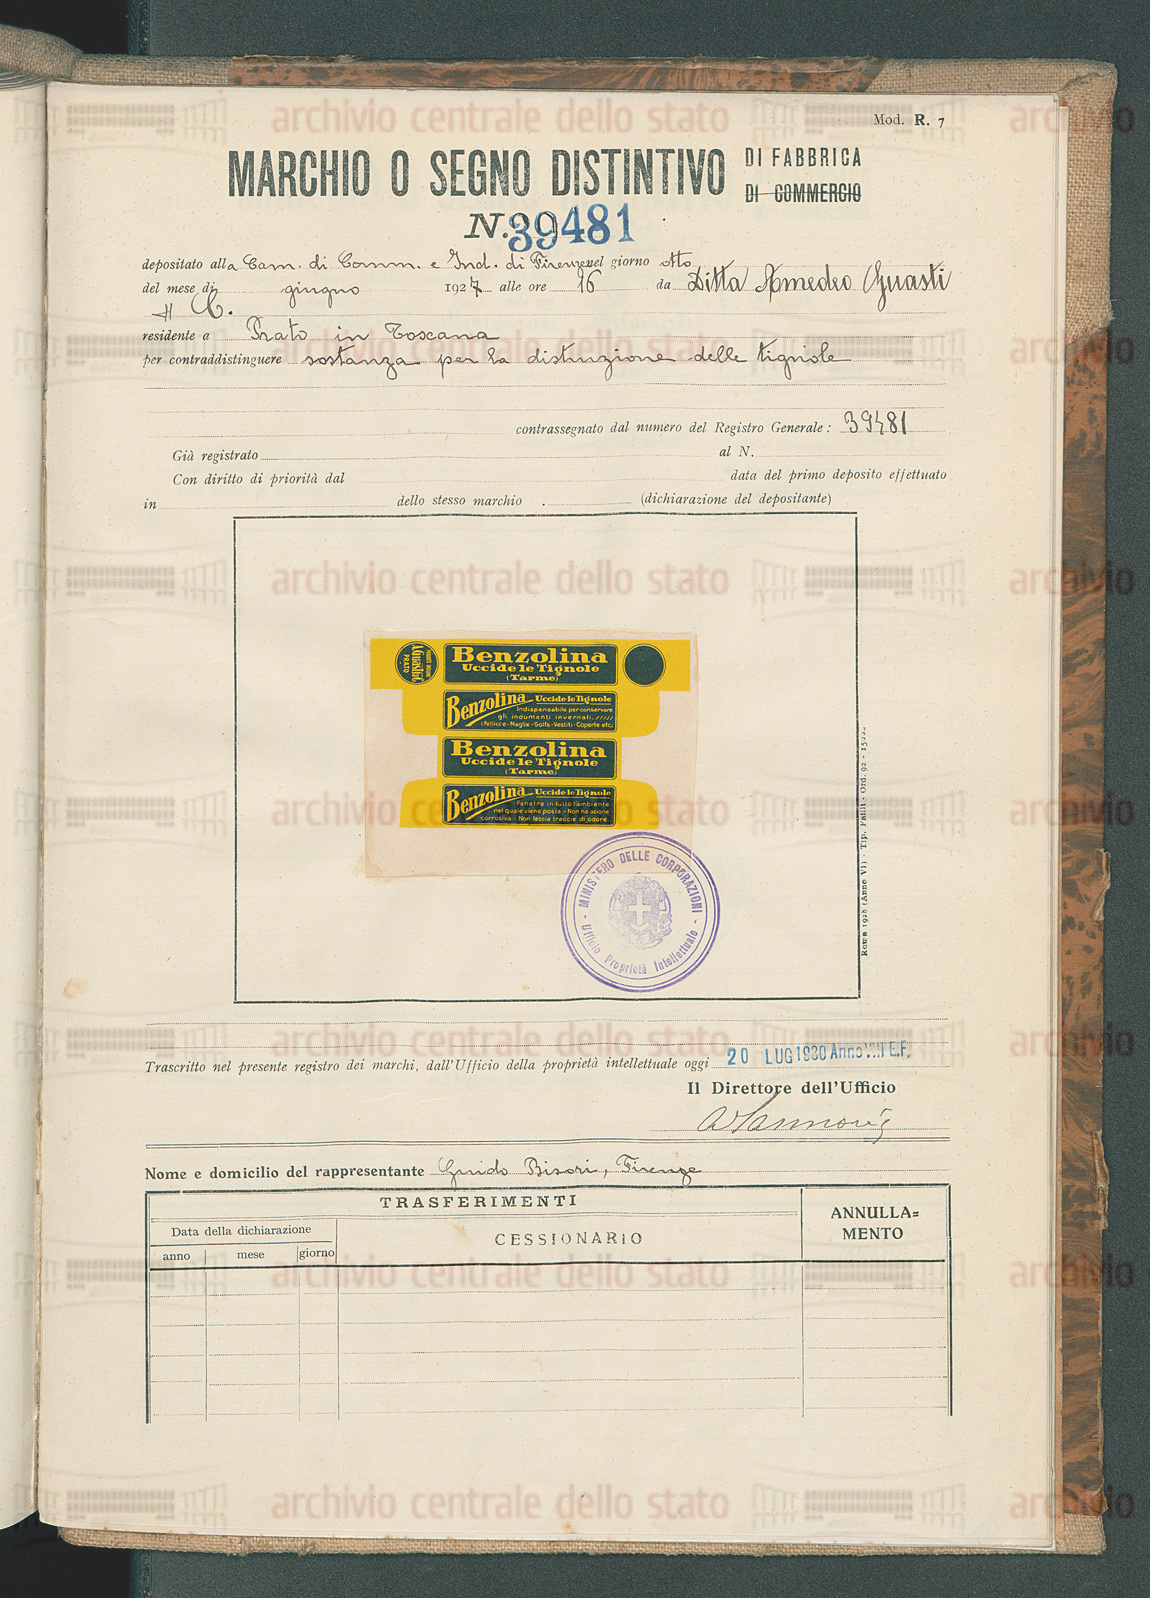 Mod. R. 7
MARCHIO O SEGNO DISTINTIVO DI FABBRICA
DI COMMERCIO
N. 39481
depositato alla Cam. di Comm. e Ind. di Firenze nel giorno otto
del mese di giugno 1927 alle ore 16 da Ditta Amedeo Guasti
& C.
residente a Prato in Toscana
per contraddistinguere sostanza per la distruzione delle tignole
contrassegnato dal numero del Registro Generale: 39481
Già registrato al N.
Con diritto di priorità dal data del primo deposito effettuato
in dello stesso marchio . (dichiarazione del depositante)
A. Guasti & C.
PRATO
Benzolina
Uccide le Tignole
(Tarme)
Benzolina Uccide le Tignole
Indispensabile per conservare
gli indumenti invernali
(Pellicce - Maglie - Golfs - Vestiti - Coperte etc.)
Benzolina
Uccide le Tignole
(Tarme)
Benzolina Uccide le Tignole
Penetra in tutto l'ambiente
nel quale viene posta - Non ha azione
corrosiva - Non lascia traccie di odore.
MINISTERO DELLE CORPORAZIONI
Ufficio Proprietà Intellettuale
Roma 1928 (Anno VI) - Tip. Failli - Ord. 92 - 15000
Trascritto nel presente registro dei marchi, dall'Ufficio della proprietà intellettuale oggi 20 LUG 1930 Anno VIII E.F.
Il Direttore dell'Ufficio
Nome e domicilio del rappresentante Guido Bisori, Firenze
TRASFERIMENTI
ANNULLA=
MENTO
Data della dichiarazione
CESSIONARIO
anno mese giorno
archivio centrale dello stato